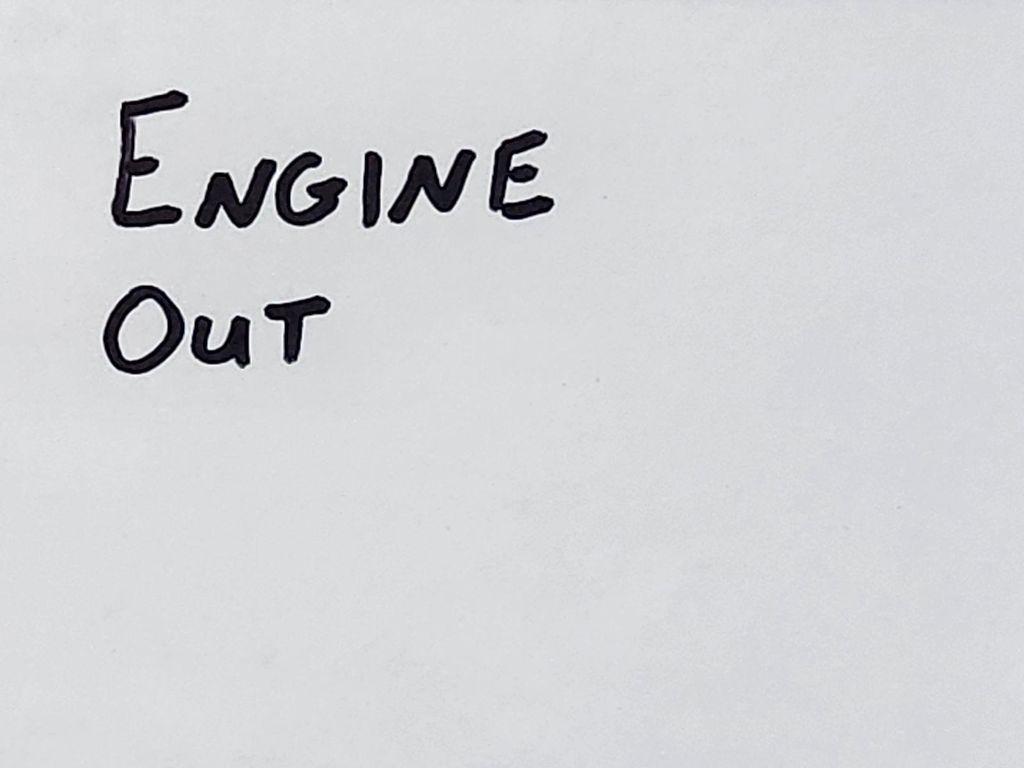 ENGINE
OUT